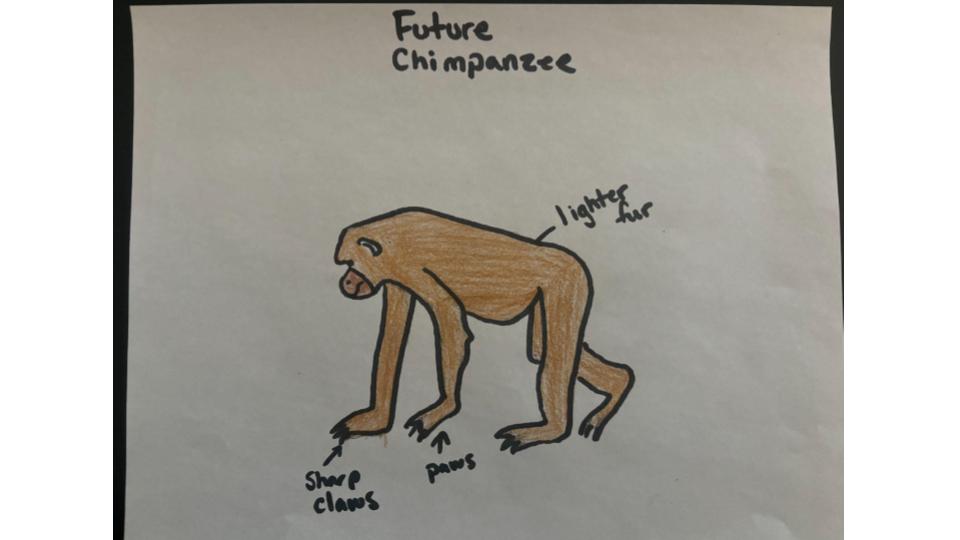 Future
Chimpanzee
lighter
fur
sharp
claws
paws